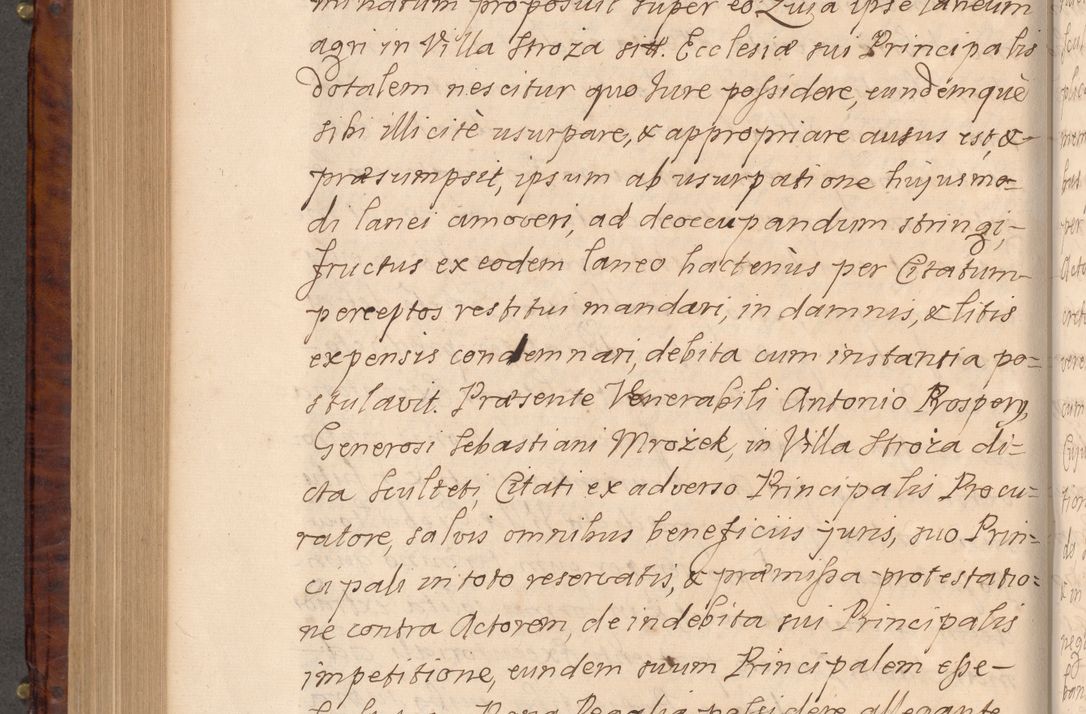 minatum proposuit super eo, Quia ipse laneum
agri in Villa Stroża sitt. Ecclesiæ sui Principalis
dotalem nescitur quo Jure possidere, eundémquè
sibi illicitè usurpare, & appropriare ausus est, &
præsumpsit, ipsum ab usurpatione hujusmo-
di lanei amoveri, ad deoccupandum stringi,
fructus ex eodem laneo hactenùs per Citatum
perceptos restitui mandari, in damnis, & litis
expensis condemnari, debita cum instantia po=
stulavit. Præsente Venerabili Antonio Prospery,
Generosi Sebastiani Mrożek, in Villa Stroża di=
cta Sculteti, Citati ex adverso Principalis Procu=
ratore, salvis omnibus beneficiis juris, suo Prin=
cipali in toto reservatis, & præmissa protestatio=
ne contra Actorem, de indebita sui Principalis
impetitione, eundem suum Principalem esse